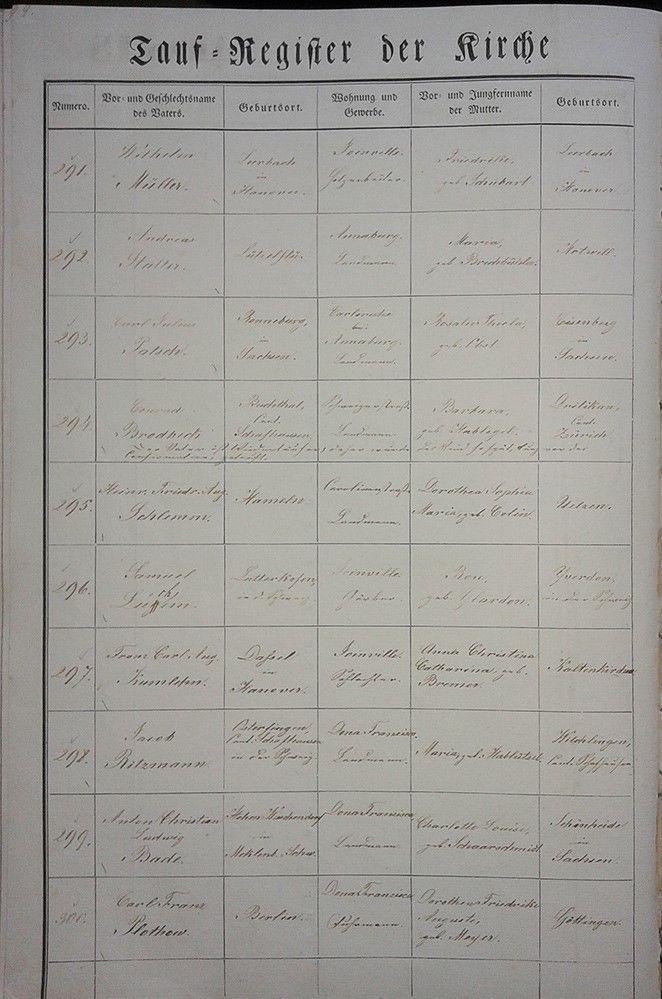 Tauf-Register der Kirche
Numero.
Vor- und Geschlechtsname
des Vaters.
Geburtsort.
Wohnung und
Gewerbe.
Vor- und Jungfernname
der Mutter.
Geburtsort.
291.
Wilhelm
Müller.
Lerbach
in
Hanover.
Joinville.
Friedrike,
geb. Schubart
Lerbach
in
Hanover
292.
Andreas
Stalter.
Annaburg.
Landmann
Maria,
geb.
293.
Carl Julius
Patsch.
Ronneburg,
in
Sachsen.
Carlsruhe
bei
Annaburg.
Landmann.
Rosalie Thecla,
geb.
Eisenberg
in
Sachsen.
294.
Conrad
Brodbeck
Cant.
Schafhausen,
Landmann
Barbara,
geb. Hablützel.
Cant.
Zürich
Der Vater ist
Confirmation getauft.
295.
Heinr. Friedr. Aug.
Schlemm.
Hameln
Carolinenstraße
Landmann.
Dorothea Sophia
Maria, geb. Colin.
Uelzen.
296.
Samuel
in d. Schweiz
Joinville
geb. Glardon.
Yverdon,
in der Schweiz
297.
Franz Carl Aug.
Kumlehn.
Dassel
in
Hanover.
Joinville.
Schlachter.
Anna Christina
Catharina, geb.
Bremer.
Kaltenkirchen
298.
Jacob
Ritzmann
Osterfingen,
Cant. Schafhausen
in der Schweiz
Dona Francisca.
Landmann.
Maria, geb. Hablützel.
Wilchingen,
Cant. Schafhausen
299.
Anton Christian
Ludwig
Bade.
in
Meklenb. Schw.
Dona Francisca
Landmann.
Charlotte Louise,
geb. Schaarschmidt
Schönheide
in
Sachsen.
300.
Carl Franz
Plothow.
Berlin.
Dona Francisca
Fuhrmann.
Dorothea Friedrike
Auguste,
geb. Meyer.
Göttingen.